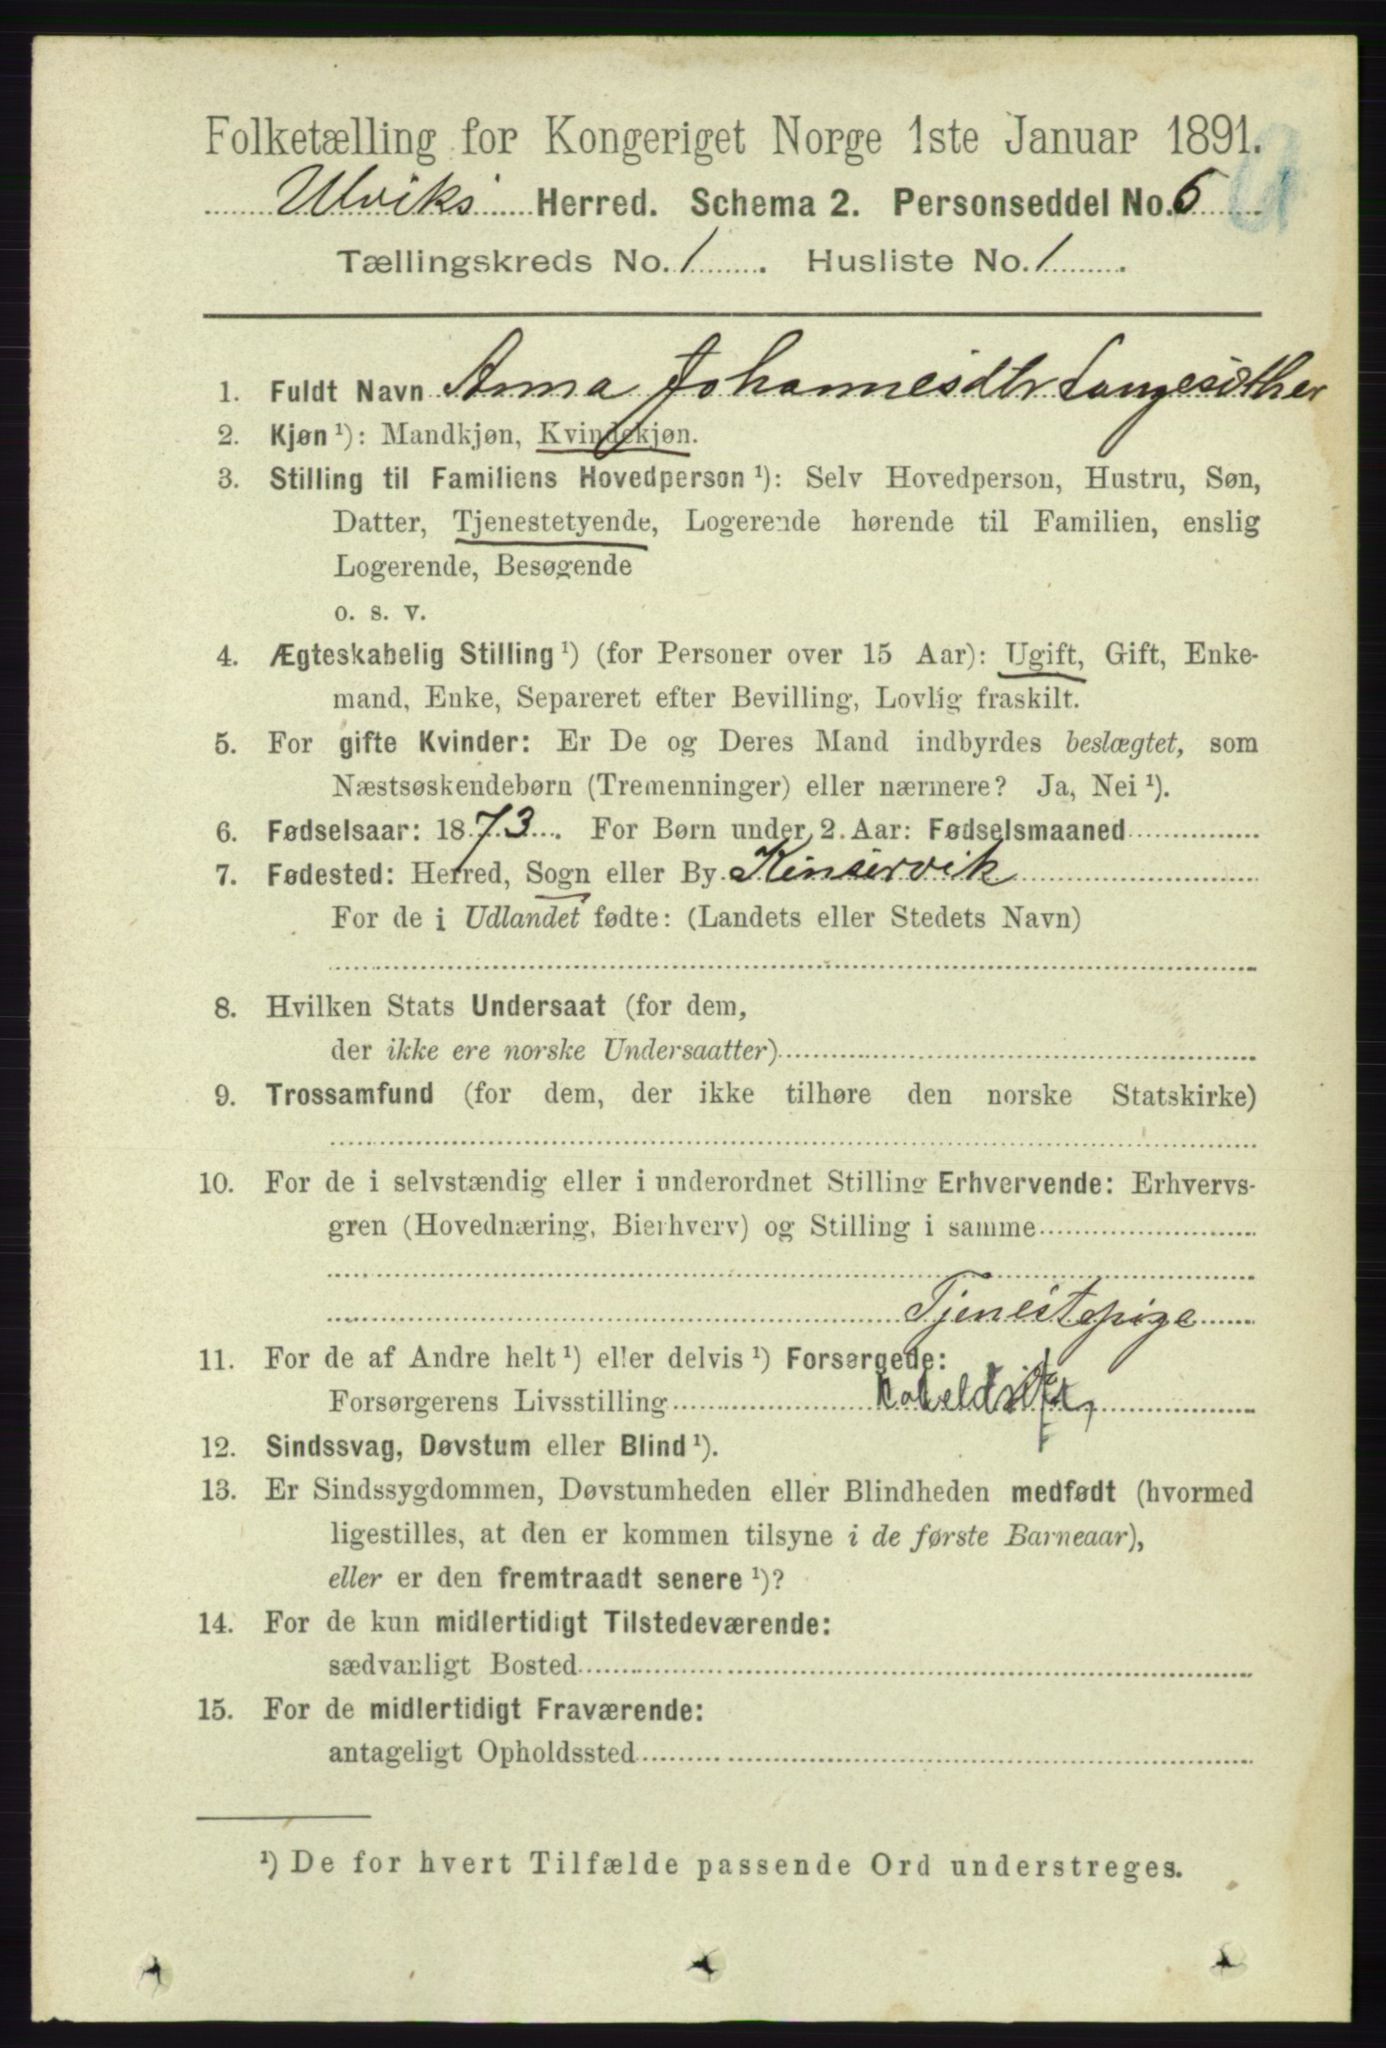 Folketælling for Kongeriget Norge 1ste Januar 1891.
Ulviks Herred. Schema 2. Personseddel No. 6
Tællingskreds No. 1. Husliste No. 1.
1. Fuldt Navn Anna Johannesdtr Langesæther
2. Kjøn ¹): Mandkjøn, Kvindekjøn.
3. Stilling til Familiens Hovedperson ¹): Selv Hovedperson, Hustru, Søn,
Datter, Tjenestetyende, Logerende hørende til Familien, enslig
Logerende, Besøgende
o. s. v.
4. Ægteskabelig Stilling ¹) (for Personer over 15 Aar): Ugift, Gift, Enke-
mand, Enke, Separeret efter Bevilling, Lovlig fraskilt.
5. For gifte Kvinder: Er De og Deres Mand indbyrdes beslægtet, som
Næstsøskendebørn (Tremenninger) eller nærmere? Ja, Nei ¹).
6. Fødselsaar: 1873. For Børn under 2. Aar: Fødselsmaaned
7. Fødested: Herred, Sogn eller By Kinservik
For de i Udlandet fødte: (Landets eller Stedets Navn)
8. Hvilken Stats Undersaat (for dem,
der ikke ere norske Undersaatter)
9. Trossamfund (for dem, der ikke tilhøre den norske Statskirke)
10. For de i selvstændig eller i underordnet Stilling Erhvervende: Erhvervs-
gren (Hovednæring, Bierhverv) og Stilling i samme
Tjenestepige
11. For de af Andre helt ¹) eller delvis ¹) Forsørgede:
Forsørgerens Livsstilling
12. Sindssvag, Døvstum eller Blind ¹).
13. Er Sindssygdommen, Døvstumheden eller Blindheden medfødt (hvormed
ligestilles, at den er kommen tilsyne i de første Barneaar),
eller er den fremtraadt senere ¹)?
14. For de kun midlertidigt Tilstedeværende:
sædvanligt Bosted
15. For de midlertidigt Fraværende:
antageligt Opholdssted
¹) De for hvert Tilfælde passende Ord understreges.